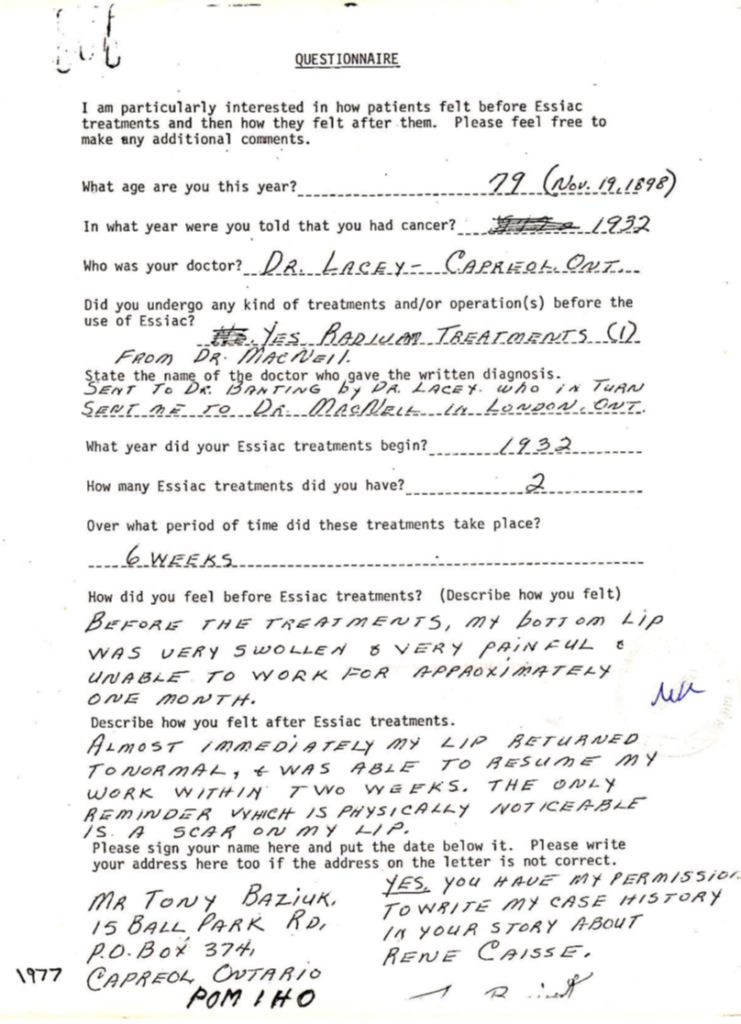 QUESTIONNAIRE
I am particularly interested in how patients felt before Essiac
treatments and then how they felt after them. Please feel free to
make any additional comments.
What age are you this year? 79 (Nov. 19, 1898)
In what year were you told that you had cancer? 1932
Who was your doctor? DR. LACEY - CAPREOL, ONT.
Did you undergo any kind of treatments and/or operation(s) before the
use of Essiac?
YES RADIUM TREATMENTS (1)
FROM DR. MACNEIL.
State the name of the doctor who gave the written diagnosis.
SENT TO DR. BANTING by DR. LACEY. WHO IN TURN
SENT ME TO DR. MACNEIL IN LONDON, ONT.
What year did your Essiac treatments begin? 1932
How many Essiac treatments did you have? 2
Over what period of time did these treatments take place?
6 WEEKS
How did you feel before Essiac treatments? (Describe how you felt)
BEFORE THE TREATMENTS, MY bOTTOM LIP
WAS VERY SWOLLEN & VERY PAINFUL &
UNABLE TO WORK FOR APPROXIMATELY
ONE MONTH.
Describe how you felt after Essiac treatments.
ALMOST IMMEDIATELY MY LIP RETURNED
TO NORMAL, & WAS ABLE TO RESUME MY
WORK WITHIN TWO WEEKS. THE ONLY
REMINDER WHICH IS PHYSICALLY NOTICEABLE
IS A SCAR ON MY LIP.
Please sign your name here and put the date below it. Please write
your address here too if the address on the letter is not correct.
MR TONY BAZIUK.
15 BALL PARK RD,
P.O. BOX 374,
CAPREOL ONTARIO
POM 1HO
1977
YES, YOU HAVE MY PERMISSION
TO WRITE MY CASE HISTORY
IN YOUR STORY ABOUT
RENE CAISSE.